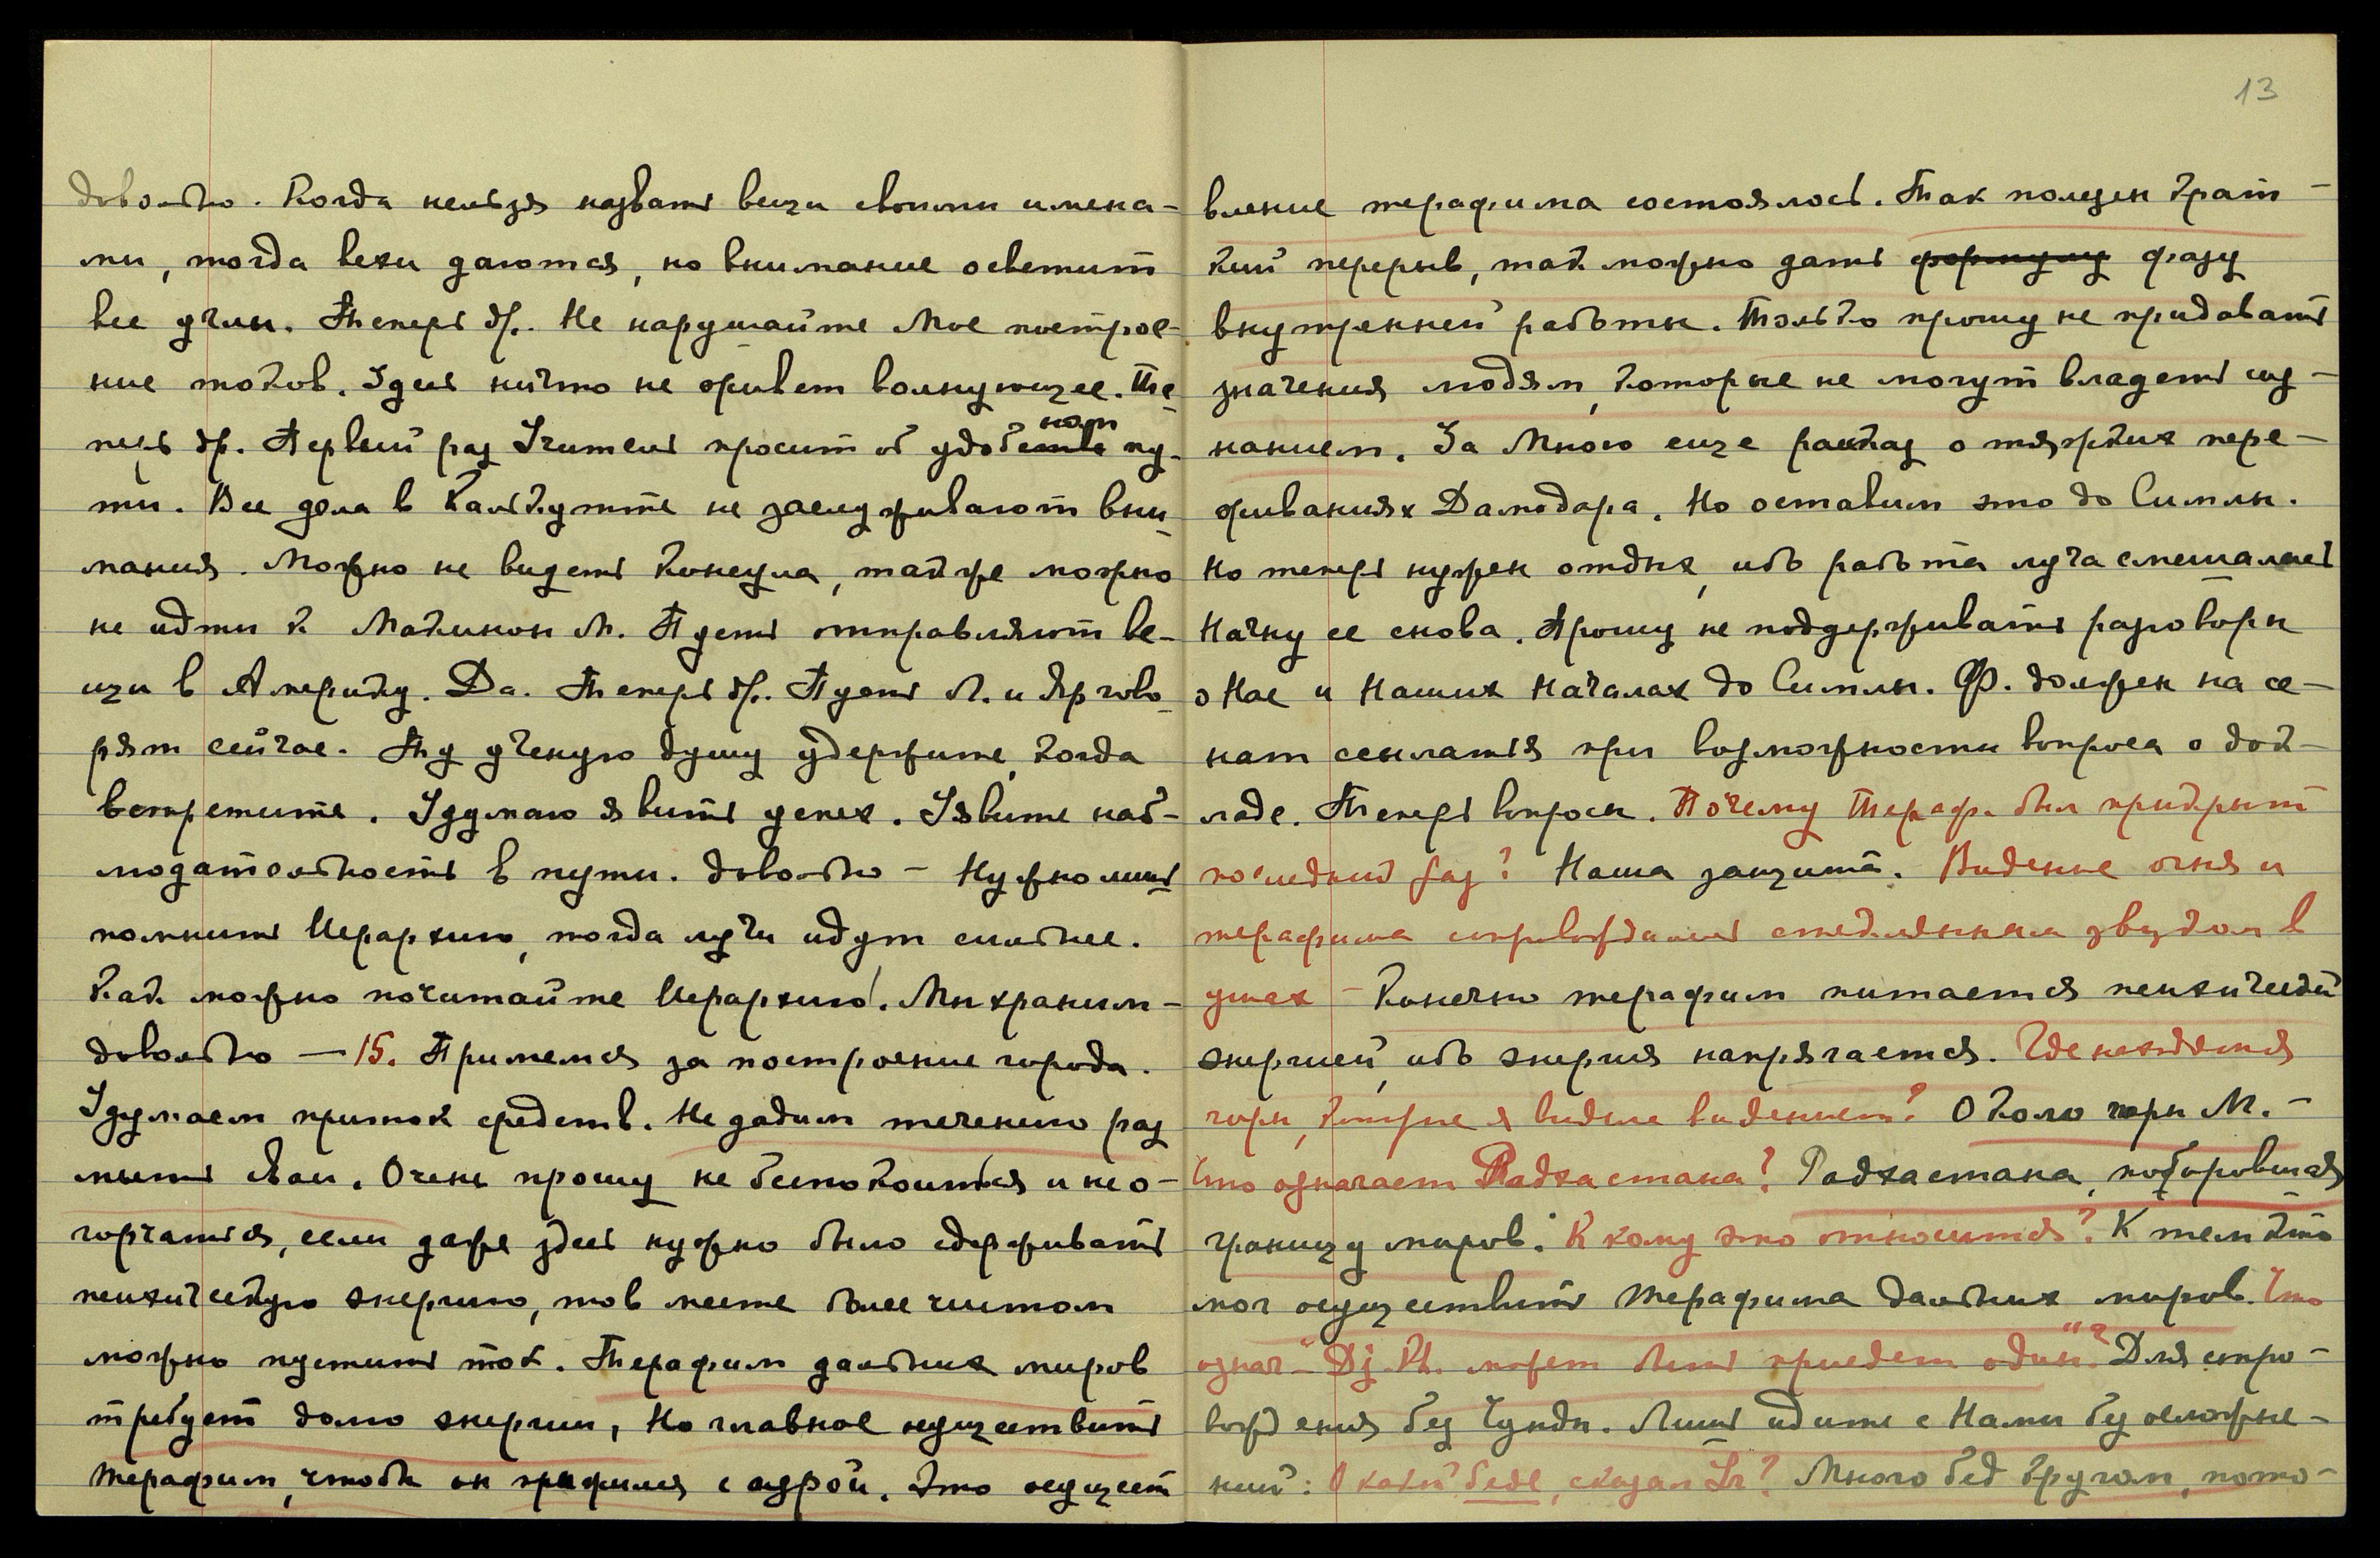 довольно. Когда нельзя назвать вещи своими имена-
ми, тогда вехи даются, но внимание осветит
все углы. Теперь др. Не нарушайте Мое построе-
ние токов. Здесь ничто не живет волнующее. Те-
перь др. Первый раз Учитель просит об удобствах пу-
ти. Все дела в Калькутте не заслуживают вни-
мания. Можно не видеть Консула, также можно
не идти к М. Пусть отправляют ве-
щи в Америку. Да. Теперь др. Пусть Л. и Яр гово-
рят сейчас. Ту ученую душу удержите, когда
встретите. Удумаю явить успех. Явите наб-
людательность в пути. довольно – Нужно лишь
помнить Иерархию, тогда лучи идут сильнее.
Как можно почитайте Иерархию! Мы храним –
довольно – 15. Примемся за построение города.
Удумаем приток средств. Не дадим течению раз
мыть сваи. Очень прошу не беспокоиться и не о-
горчаться, если даже здесь нужно было сдерживать
психическую энергию, то в месте более чистом
можно пустить ток. Терафим дальних миров
требует долго энергии, но главное осуществить
терафим, чтобы он с аурой. Это осущест
13
вление терафима состоялось. Так полезен крат-
кий перерыв, так можно дать формулу фазу
внутренней работы. Только прошу не придавать
значения людям, которые не могут владеть соз-
нанием. За Мною еще рассказ о тяжких пере-
живаниях Дамодара. Но оставим это до Симлы.
Но теперь нужен отдых, ибо работа луча смешалась
Начну ее снова. Прошу не поддерживать разговоры
о Нас и Наших Началах до Симлы. Ф. должен на се-
нат сослаться при возможности вопроса о док-
ладе. Теперь вопросы. Почему Тераф. был прикрыт
последний раз? Наша защита. Видение огня и
терафима сопровождалось стеклянным звуком в
ушах – Конечно терафим питается психической
энергией, ибо энергия напрягается. Где находятся
горы, которые я видела видением? Около горы М. –
Что означает Раджастана? Раджастана, поборовшая
границу миров. К кому это относится? К тем кто
мог осуществить Терафима дальних миров. Что
означ. – "Dj. Kh. может быть приедет один"? Для сопро-
вождения без Чунды. Лишь идите с Нами без осложне-
ний: О какой беде, сказал Уч? Много бед кругом, пото-